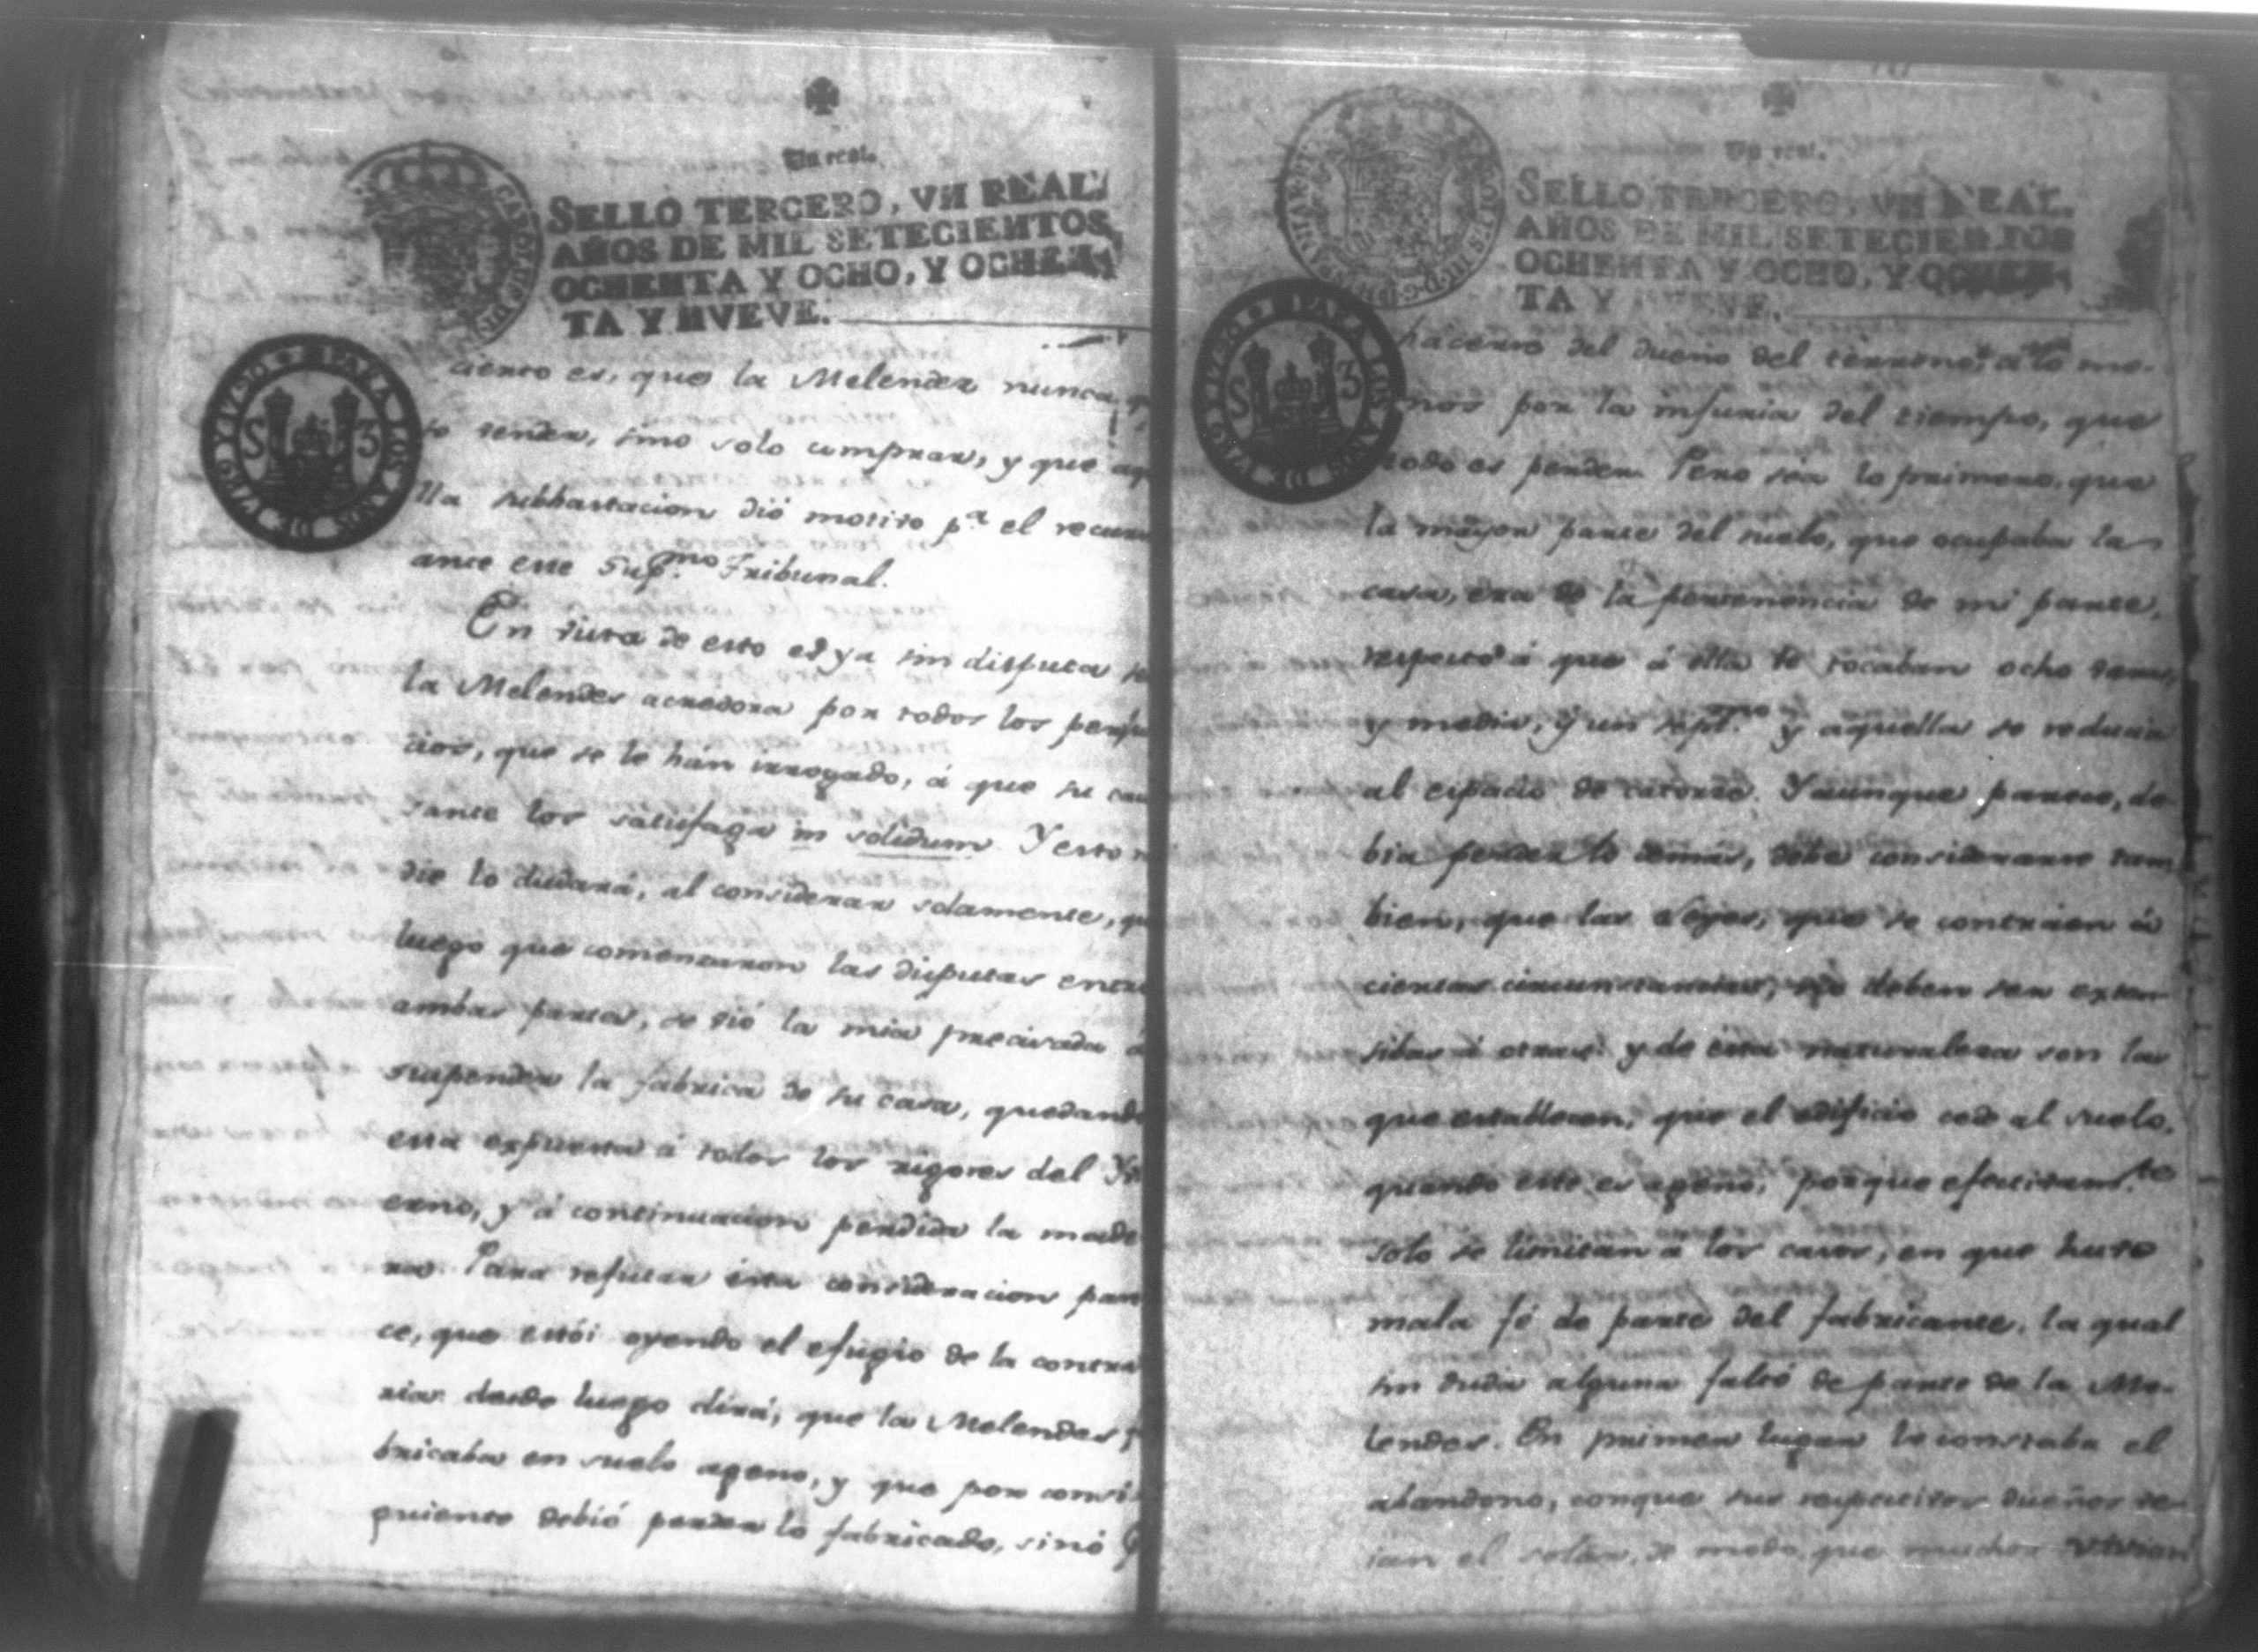 Un real.
SELLO TERCERO, VN REAL,
AÑOS DE MIL SETECIENTOS
OCHENTA Y OCHO, Y OCHEN
TA Y NVEVE.
CAROLUS
PARA LOS AÑOS DE 1790 Y 1791
S 3
cierto es, que la Melendez nunca
so vender, sino solo comprar, y que aq
lla subhastacion dió motivo pª el recur
ante este Sup.mo Tribunal.
En vista de esto es ya sin disputa
la Melendes acredora por todos los perjui
cios, que se le hán irrogado, á que su cau
sante los satisfaga in solidum. Y esto n
die lo dudará, al considerar solamente, qu
luego que comenzaron las disputas entre
ambas partes, se vió la mia precisada á
suspender la fabrica de su casa, quedando
esta expuesta á todos los rigores del Yn
erno, y á continuacion perdida la made
ra. Para refutar esta consideracion pare
ce, que estói oyendo el efugio de la contra
ria: desde luego dirá, que la Melendes f
bricaba en suelo ageno, y que por consi
guiente debió perder lo fabricado, sinó
Un real.
SELLO TERCERO, VN REAL,
AÑOS DE MIL SETECIENTOS
OCHENTA Y OCHO, Y OCHEN
TA Y NVEVE.
PARA LOS AÑOS DE 1790 Y 1791
S 3
hacerse del dueño del terreno, á lo me-
nos por la injuria del tiempo, que
todo es perder. Pero sea lo primero, que
la mayor parte del suelo, que ocupaba la
casa, era de la pertenencia de mi parte,
respecto á que á ella le tocaban ocho varas,
y media, y un sept.mo y aquella se reducia
al espacio de catorze. Y aunque parece, de-
bia perder lo demás, debe considerarse tam
bien, que las Leyes, que se contraen á
ciertas circunstancias, no deben ser exten-
sibas á otras: y de esta naturaleza son las
que establecen, que el edificio cede al suelo,
quando este es ageno; porque efectivam.te
solo se limitan á los casos, en que huvo
mala fé de parte del fabricante. la qual
sin duda alguna faltó de parte de la Me-
lendes. En primer lugar le constaba el
abandono, conque sus respectivos dueños te-
ian el solar, de modo que muchos vivian